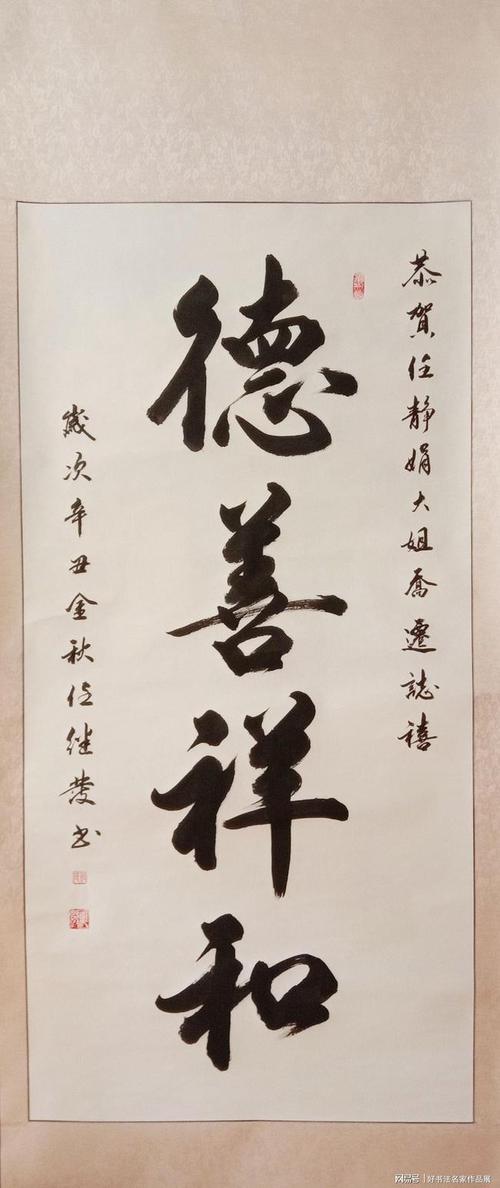 恭賀任静娟大姐喬遷誌禧
德善祥和
歲次辛丑金秋任继發书
网易号 | 好书法名家作品展